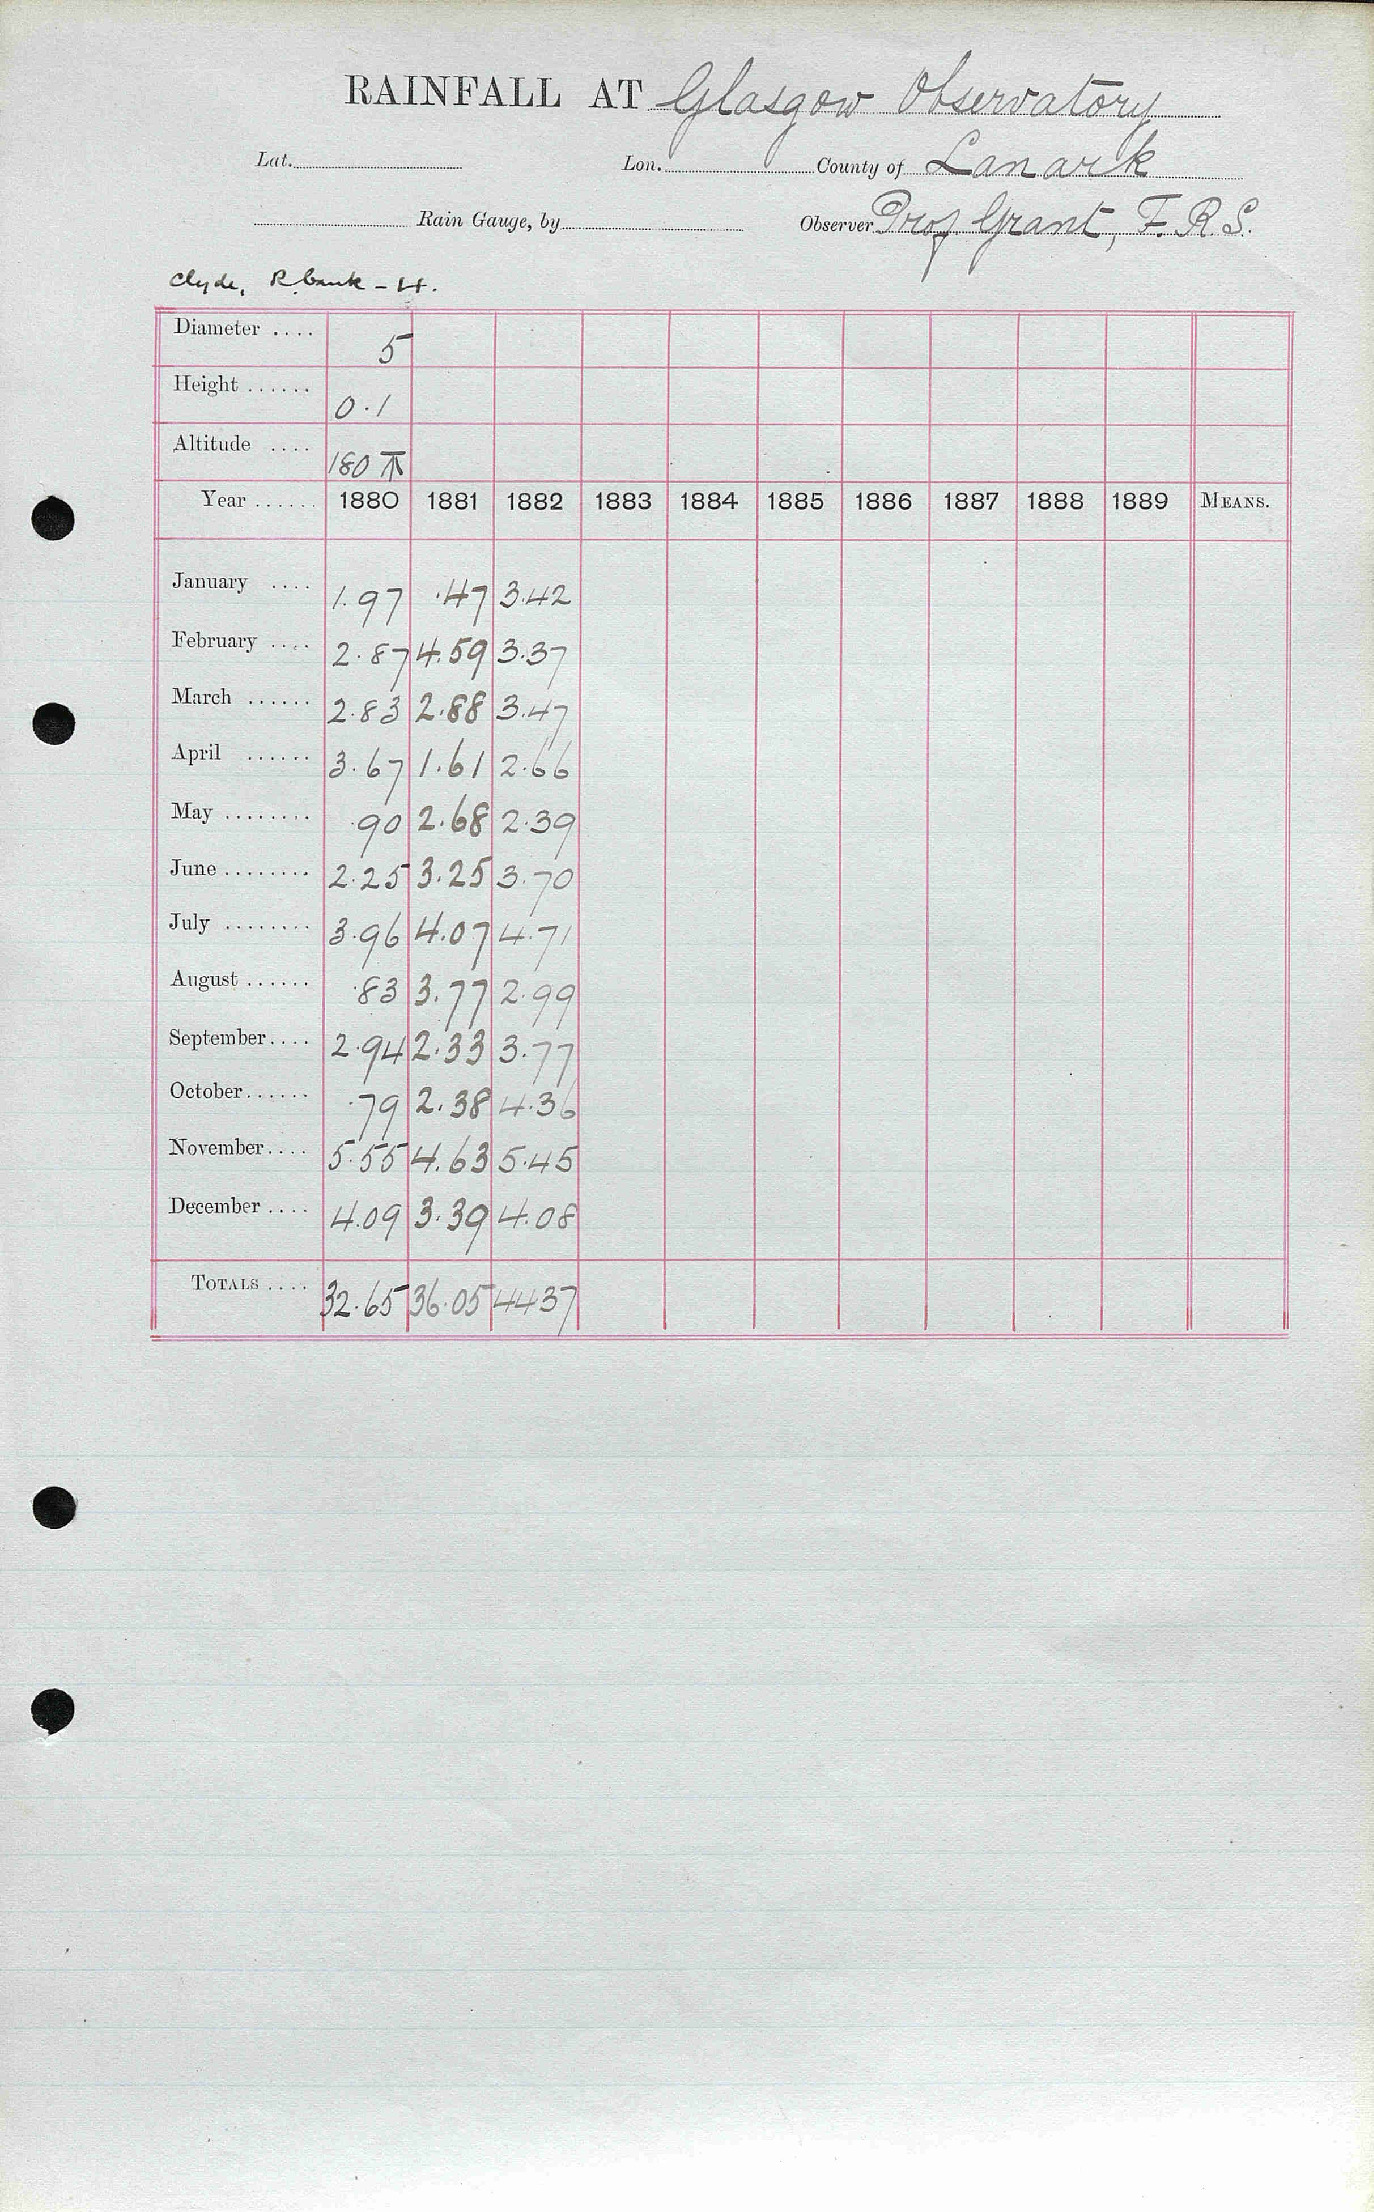 RAINFALL AT Glasgow Observatory
Lat. Lon. County of Lanark
Rain Gauge, by Observer Prof Grant, F.R.S.
Clyde, R bank - 4.
Diameter .... 5
Height ...... 0.1
Altitude .... 180 ⊼
Year ...... 1880 1881 1882 1883 1884 1885 1886 1887 1888 1889 MEANS.
January .... 1.97 .47 3.42
February .... 2.87 4.59 3.37
March ...... 2.83 2.88 3.47
April ...... 3.67 1.61 2.66
May ........ .90 2.68 2.39
June ........ 2.25 3.25 3.70
July ........ 3.96 4.07 4.71
August ...... .83 3.77 2.99
September.... 2.94 2.33 3.77
October...... .79 2.38 4.36
November.... 5.55 4.63 5.45
December .... 4.09 3.39 4.08
TOTALS .... 32.65 36.05 4437